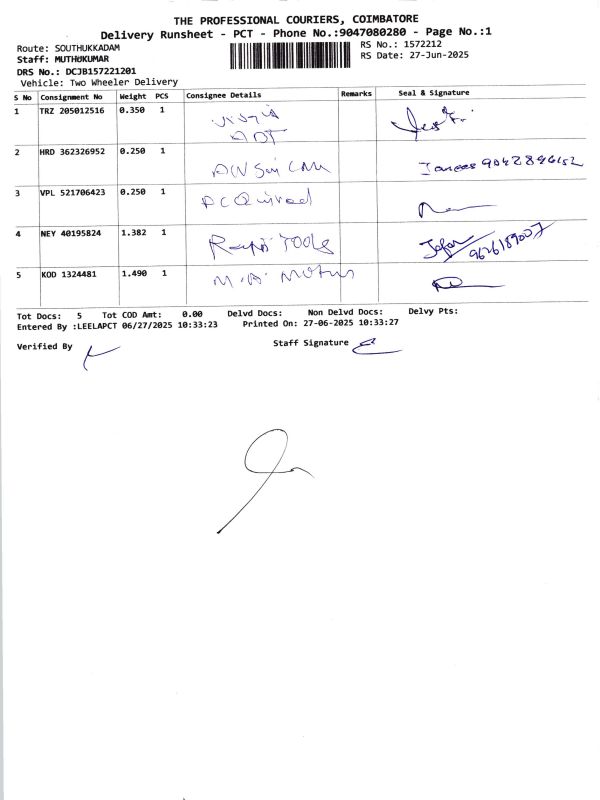 THE PROFESSIONAL COURIERS, COIMBATORE
Delivery Runsheet - PCT - Phone No.:9047080280 - Page No.:1
Route: SOUTHUKKADAM RS No.: 1572212
Staff: MUTHUKUMAR RS Date: 27-Jun-2025
DRS No.: DCJB157221201
Vehicle: Two Wheeler Delivery
S No Consignment No Weight PCS Consignee Details Remarks Seal & Signature
1 TRZ 205012516 0.350 1
2 HRD 362326952 0.250 1
3 VPL 521706423 0.250 1
4 NEY 40195824 1.382 1 Rapi TOOLS 9626189007
5 KOD 1324481 1.490 1 M.A. Motus
Tot Docs: 5 Tot COD Amt: 0.00 Delvd Docs: Non Delvd Docs: Delvy Pts:
Entered By :LEELAPCT 06/27/2025 10:33:23 Printed On: 27-06-2025 10:33:27
Verified By Staff Signature